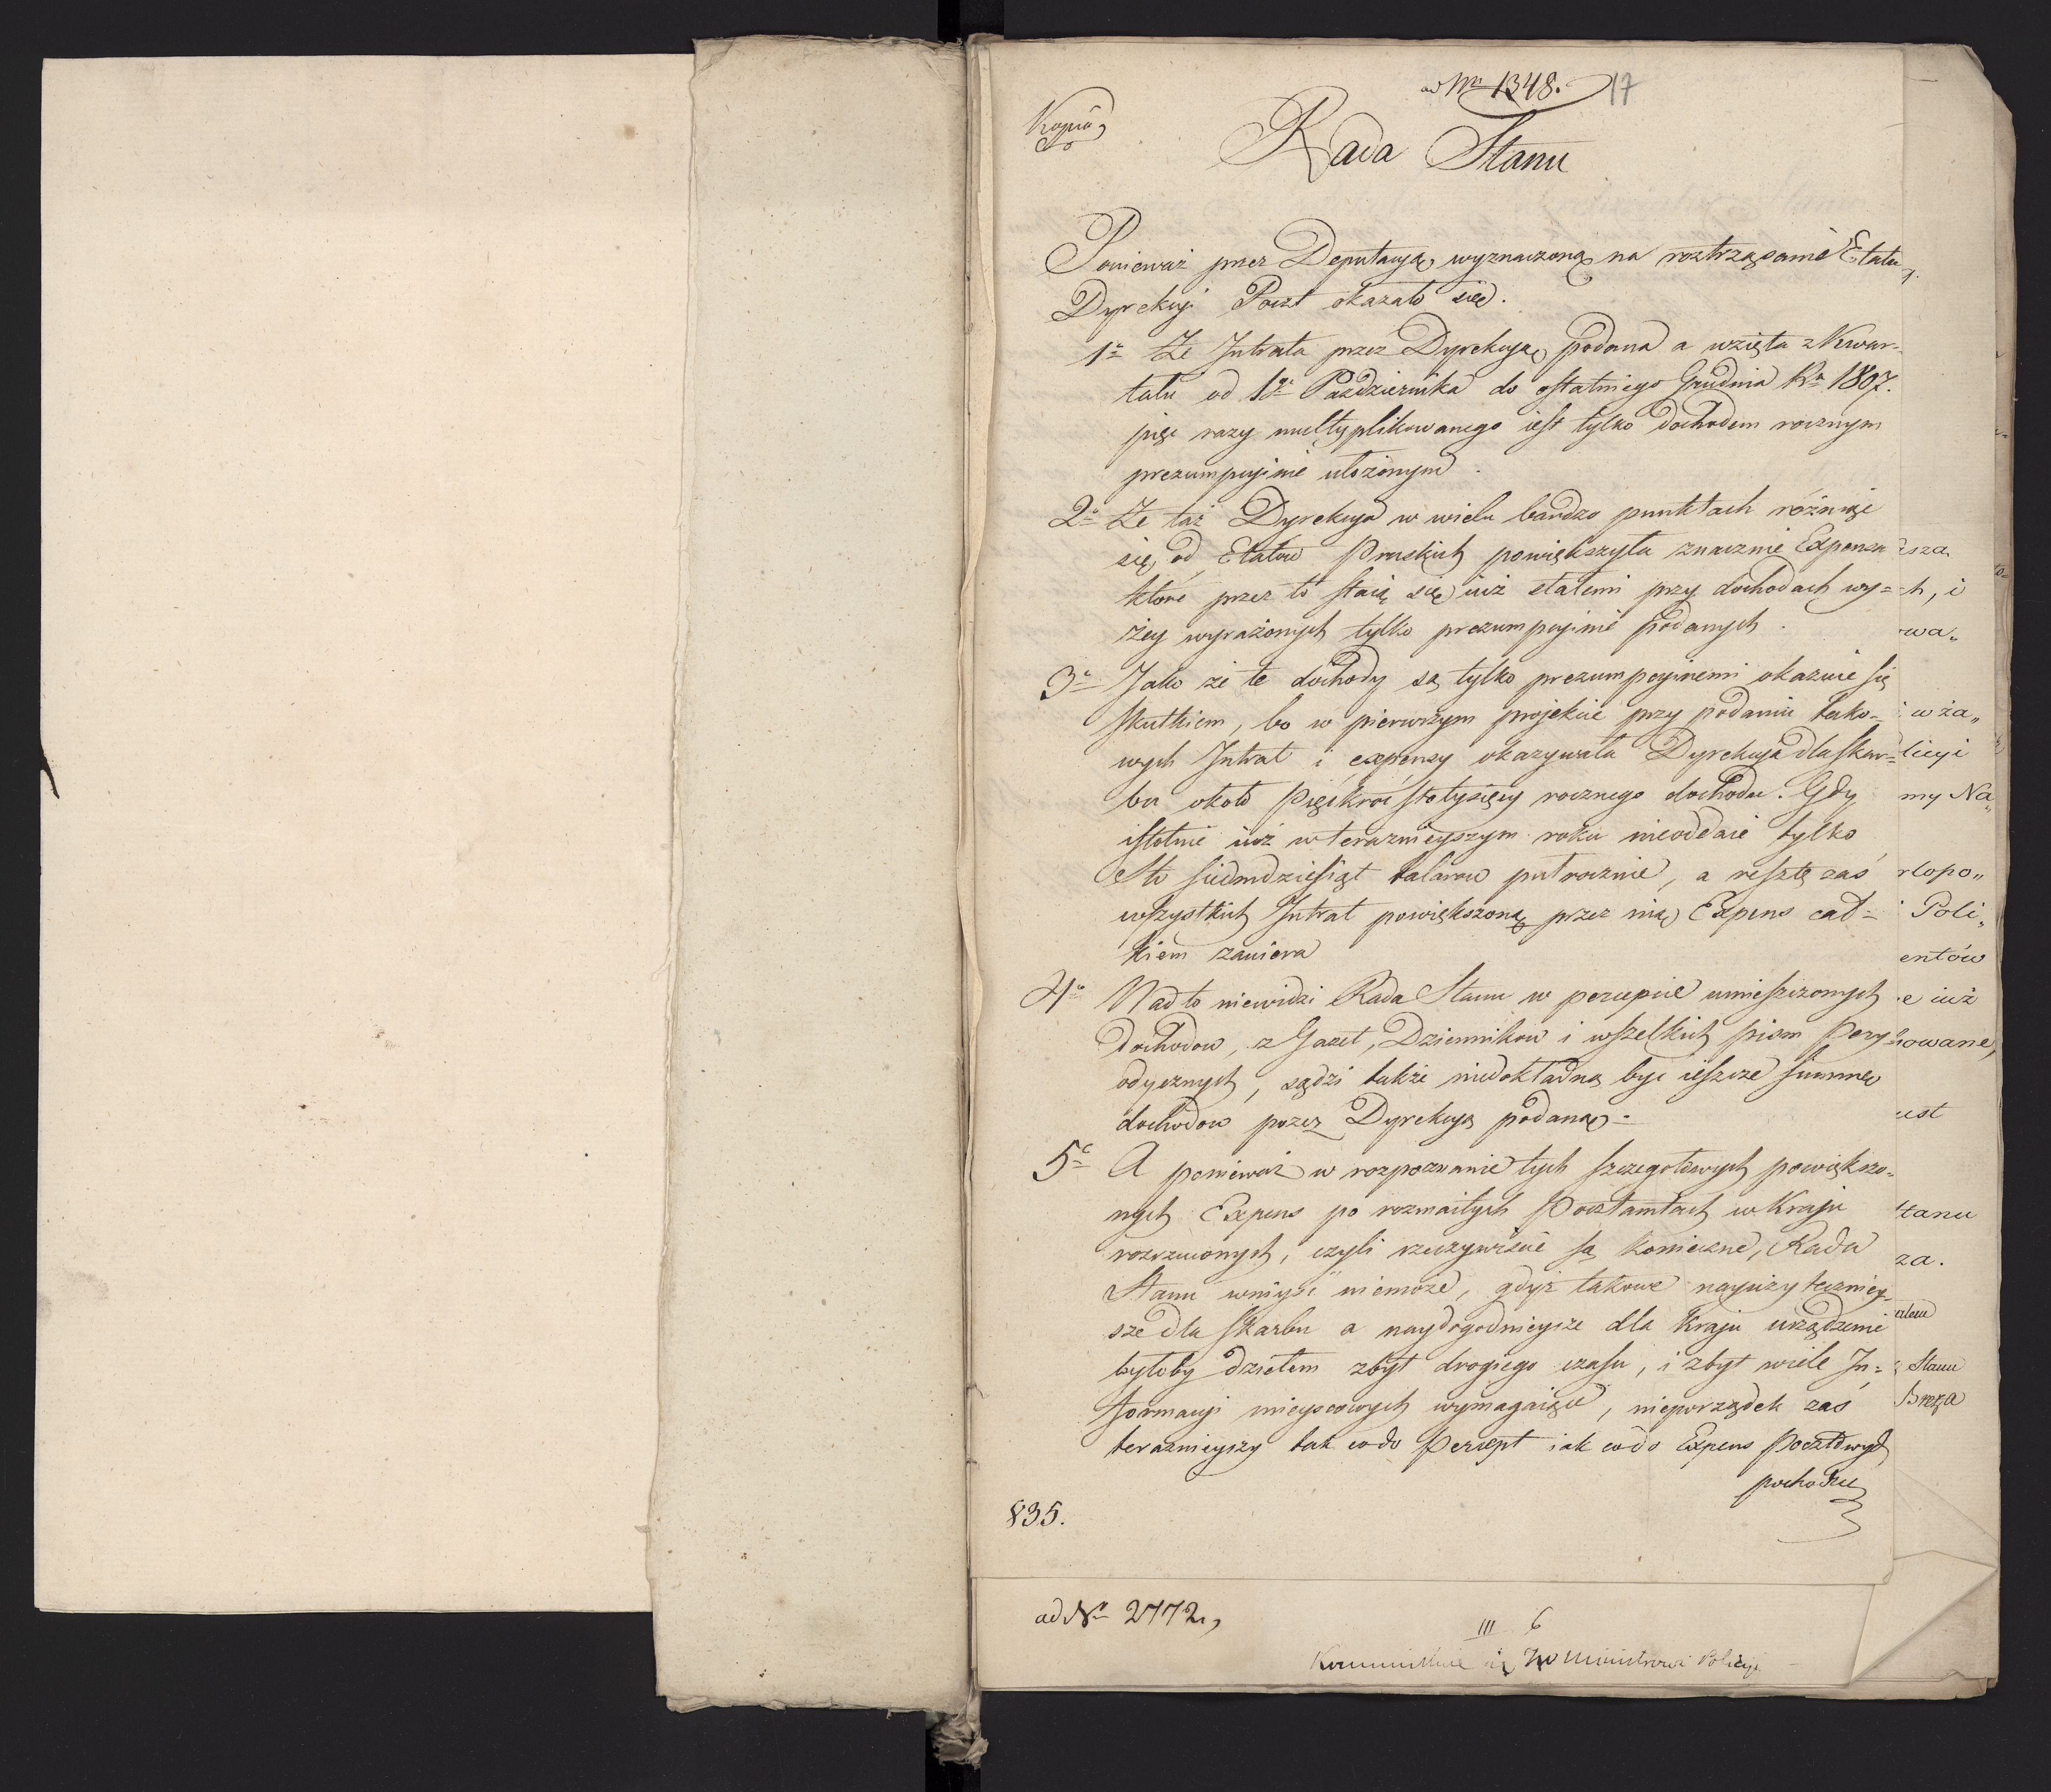 ad Nr 1348. 17
Kopia
Rada Stanu
Ponieważ przez Deputacyą wyznaczoną na roztrząsanie Etatu
Dyrekcyi Poczt okazało się.
1e Że Intrata przez Dyrekcyą podana a wzięta z Kwar-
tału od 1go Października do ostatniego Grudnia Ra 1807.
pięć razy multyplikowanego iest tylko dochodem rocznym
prezumpcyinie ułożonym.
2e Że taż Dyrekcya w wielu bardzo punktach różniąc
się od Etatow Pruskich powiększyła znacznie Expensa
które przez to staią się iuż stałemi przy dochodach wy=
żey wyrażonych tylko prezumpcyinie podanych.
3e Jako że te dochody są tylko prezumpcyinemi okazuie się
skutkiem, bo w pierwszym projekcie przy podaniu tako-
wych Intrat i expensy okazywała Dyrekcya dla skar=
bu około Pięćkroć stotysięcy rocznego dochodu. Gdy
istotnie iuż w teraznieyszym roku nieoddaie tylko
Sto siedmdziesiąt talarow put rocznie, a resztę zaś
wszystkich Intrat powiększoną przez nią Expens cał=
kiem zawiera
4e Nad to niewidzi Rada Stanu w percepcie umieszczonych
dochodow, z Gazet, Dziennikow i wszelkich pism Pery-
odycznych, sądzi także niedokładną być ieszcze summę
dochodow przez Dyrekcyą podaną=
5e A ponieważ w rozpoznanie tych szczegołowych powiększo-
nych Expens po rozmaitych Pocztamtach w Kraju
rozrzuconych, czyli rzeczywiście są konieczne, Rada
Stanu wniyść niemoże, gdyż takowe nayużyteczniey-
sze dla skarbu a naydogodnieysze dla Kraju urządzenie
byłoby dziełem zbyt drogiego czasu, i zbyt wiele In=
formacyi mieyscowych wymagaiące, nieporządek zaś
teraznieyszy tak co do Percept iak co do Expens Pocztowych
pochodzi
835.
ad No 2772,
III 6
Kommunikuie się JW Ministrowi Policyi
sza
h, i
wa„
w ża„
licyi
my Na„
rlopo„
Poli„
entów
e iuż
owane,
ust
tanu
za.
Stanu
Breza